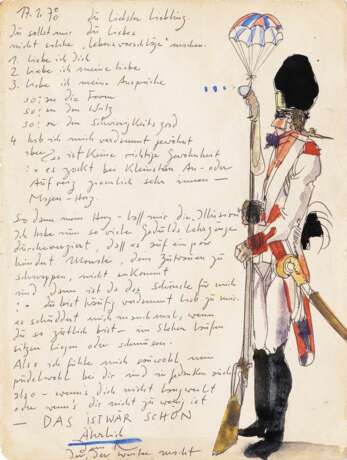 17.1.70 du liebster Liebling
Du sollst mir du liebes
nicht solche "Lebensvorschläge" machen.
1. liebe ich dich
2. liebe ich meine liebe
3. liebe ich meine Ansprüche
so: an die Form
so: an den Witz
so: an den Schwierigkeitsgrad
4 hab ich mich verdammt gewöhnt
aber das ist keine richtige Gewohnheit
: es zockt bei kleinsten An- oder
Aufruf ziemlich sehr innen —
Magen - Herz.
So denn mein Herz - laß mir die Illusion
Ich habe nun so viele Gedulds Lehrgänge
daß es auf ein paar
hundert Monate, dem zu
nicht ankommt
und dann ist da das schönste für mich
: Du bist häufig verdammt lieb zu mir.
es schüddat mich manchmal, wenn
Du so zärtlich bist - im Stehen laufen
sitzen liegen oder schmusen.
Also ich fühle mich sauwohl, mann
pudelwohl bei dir und in Gedanken auch
also - wenns dich nicht langweilt
oder wenns dir nicht zu wenig ist
— DAS IST WÄR SCHON
Ährlich
du, der